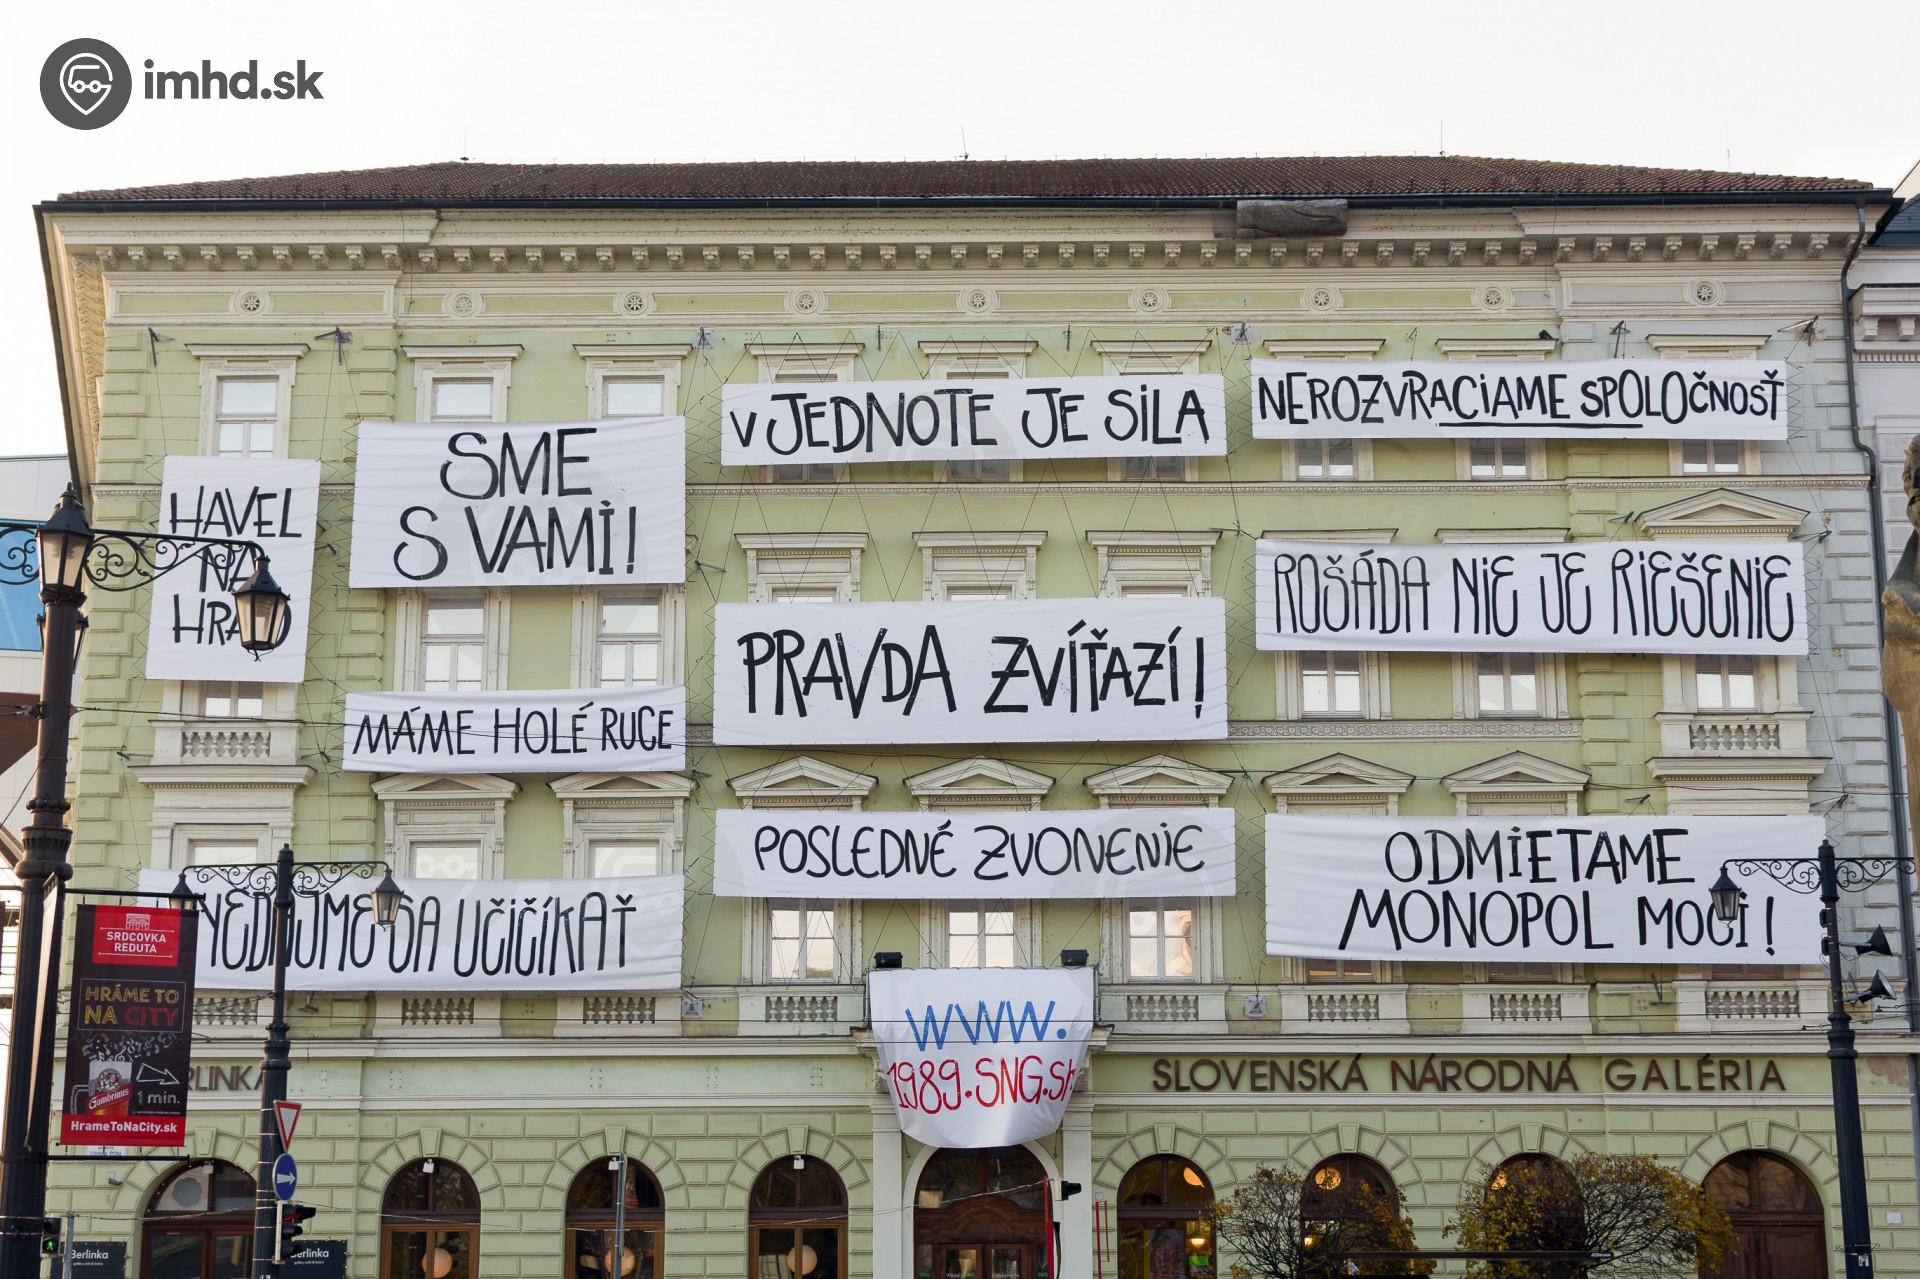 imhd.sk
HAVEL
NA
HRAD
SME
S VAMI!
V JEDNOTE JE SILA
NEROZVRACIAME SPOLOČNOSŤ
ROŠÁDA NIE JE RIEŠENIE
PRAVDA ZVÍŤAZÍ!
MÁME HOLÉ RUCE
POSLEDNÉ ZVONENIE
ODMIETAME
MONOPOL MOCI!
NEDAJME SA UČIČÍKAŤ
WWW.
1989.SNG.sk
SLOVENSKÁ NÁRODNÁ GALÉRIA
SRDCOVKA
REDUTA
HRÁME TO
NA CITY
Gambrinus
1 min.
HrameToNaCity.sk
Berlinka
Berlinka